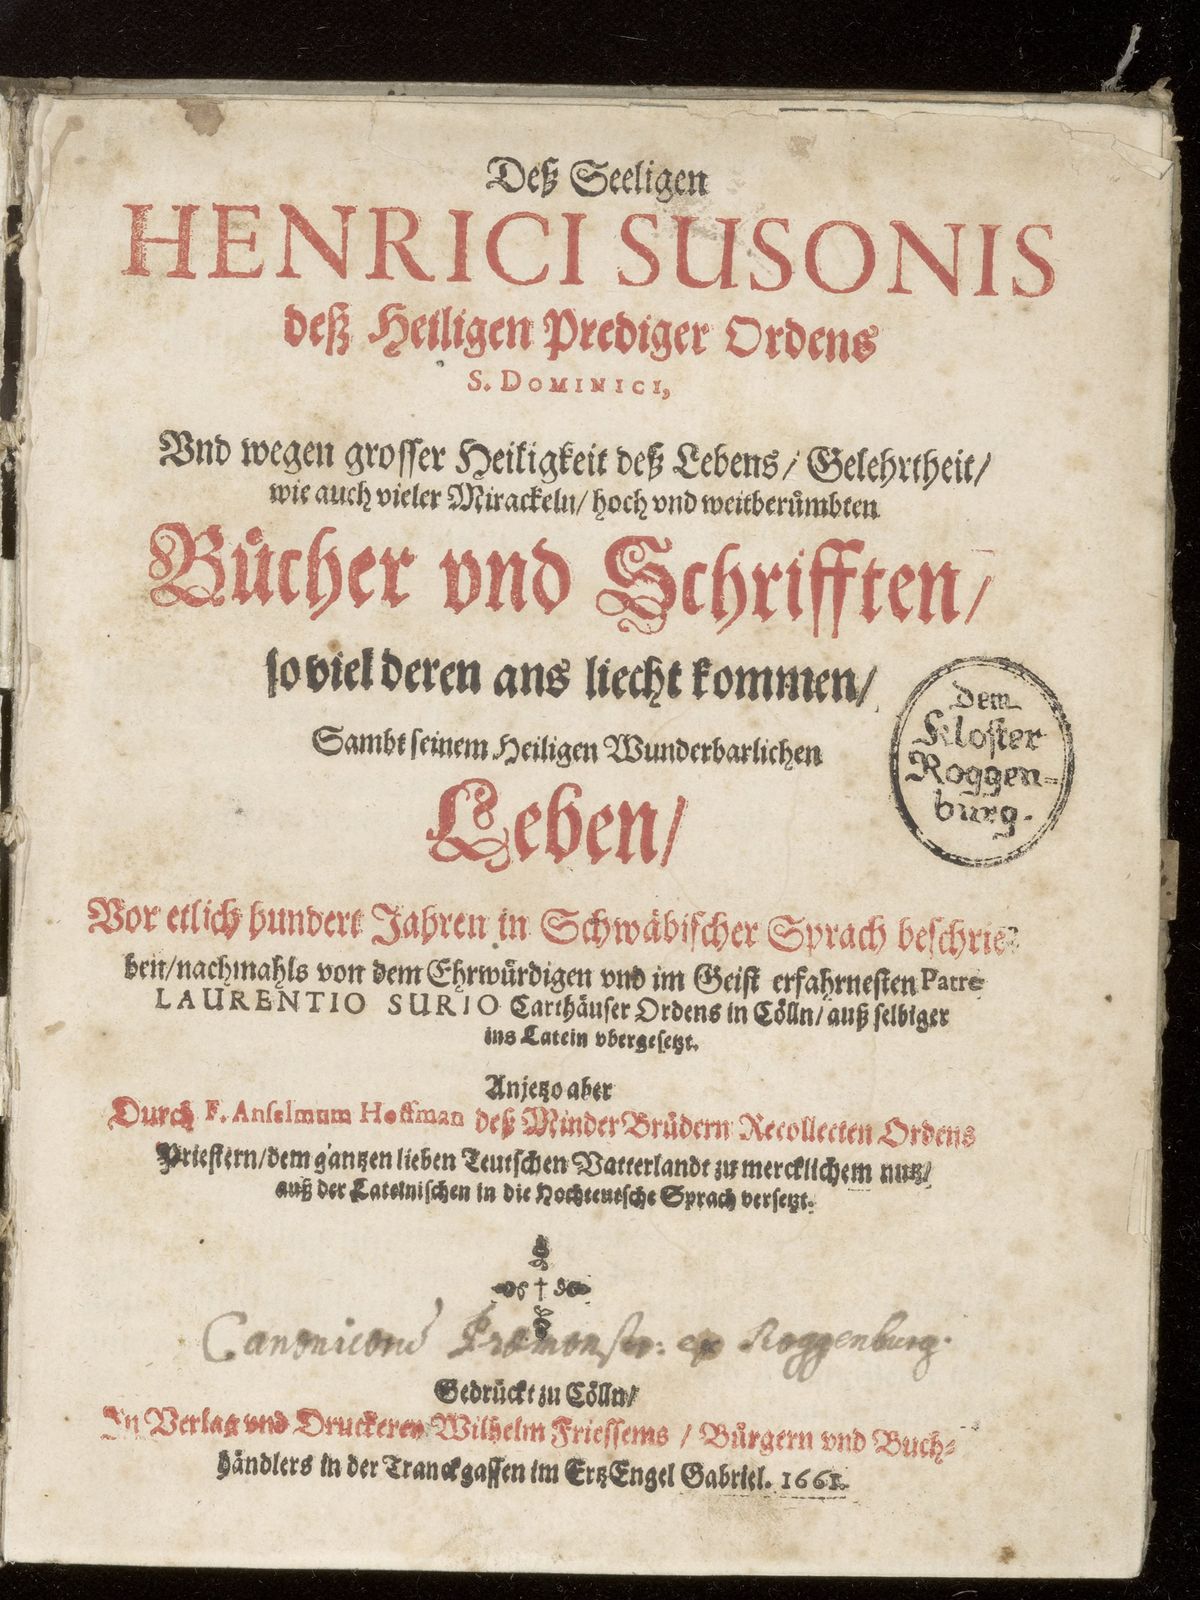 Deß Seeligen
HENRICI SUSONIS
deß Heiligen Prediger Ordens
S. DOMINICI,
Vnd wegen grosser Heiligkeit deß Lebens/ Gelehrtheit/
wie auch vieler Mirackeln/ hoch vnd weitberůmbten
Bücher vnd Schrifften/
so viel deren ans liecht kommen/
Sambt seinem Heiligen Wunderbarlichen
Leben/
dem
Kloster
Roggen-
burg.
Vor etlich hundert Jahren in Schwäbischer Sprach beschrie-
ben/ nachmahls von dem Ehrwürdigen vnd im Geist erfahrnesten Patre
LAURENTIO SURIO Carthäuser Ordens in Cölln/ auß selbiger
ins Latein vbergesetzt.
Anjetzo aber
Durch F. Anselmum Hoffman deß Minder Brüdern Recollecten Ordens
Priestern/ dem gantzen lieben Teutschen Vatterlandt zu mercklichem nutz/
auß der Lateinischen in die Hochteutsche Sprach versetzt.
Canonicorū Præmonstr: ex Roggenburg.
Gedrückt zu Cölln/
In Verlag vnd Druckerey Wilhelm Friessems / Bürgern vnd Buch-
händlers in der Tranckgassen im ErtzEngel Gabriel. 1661.